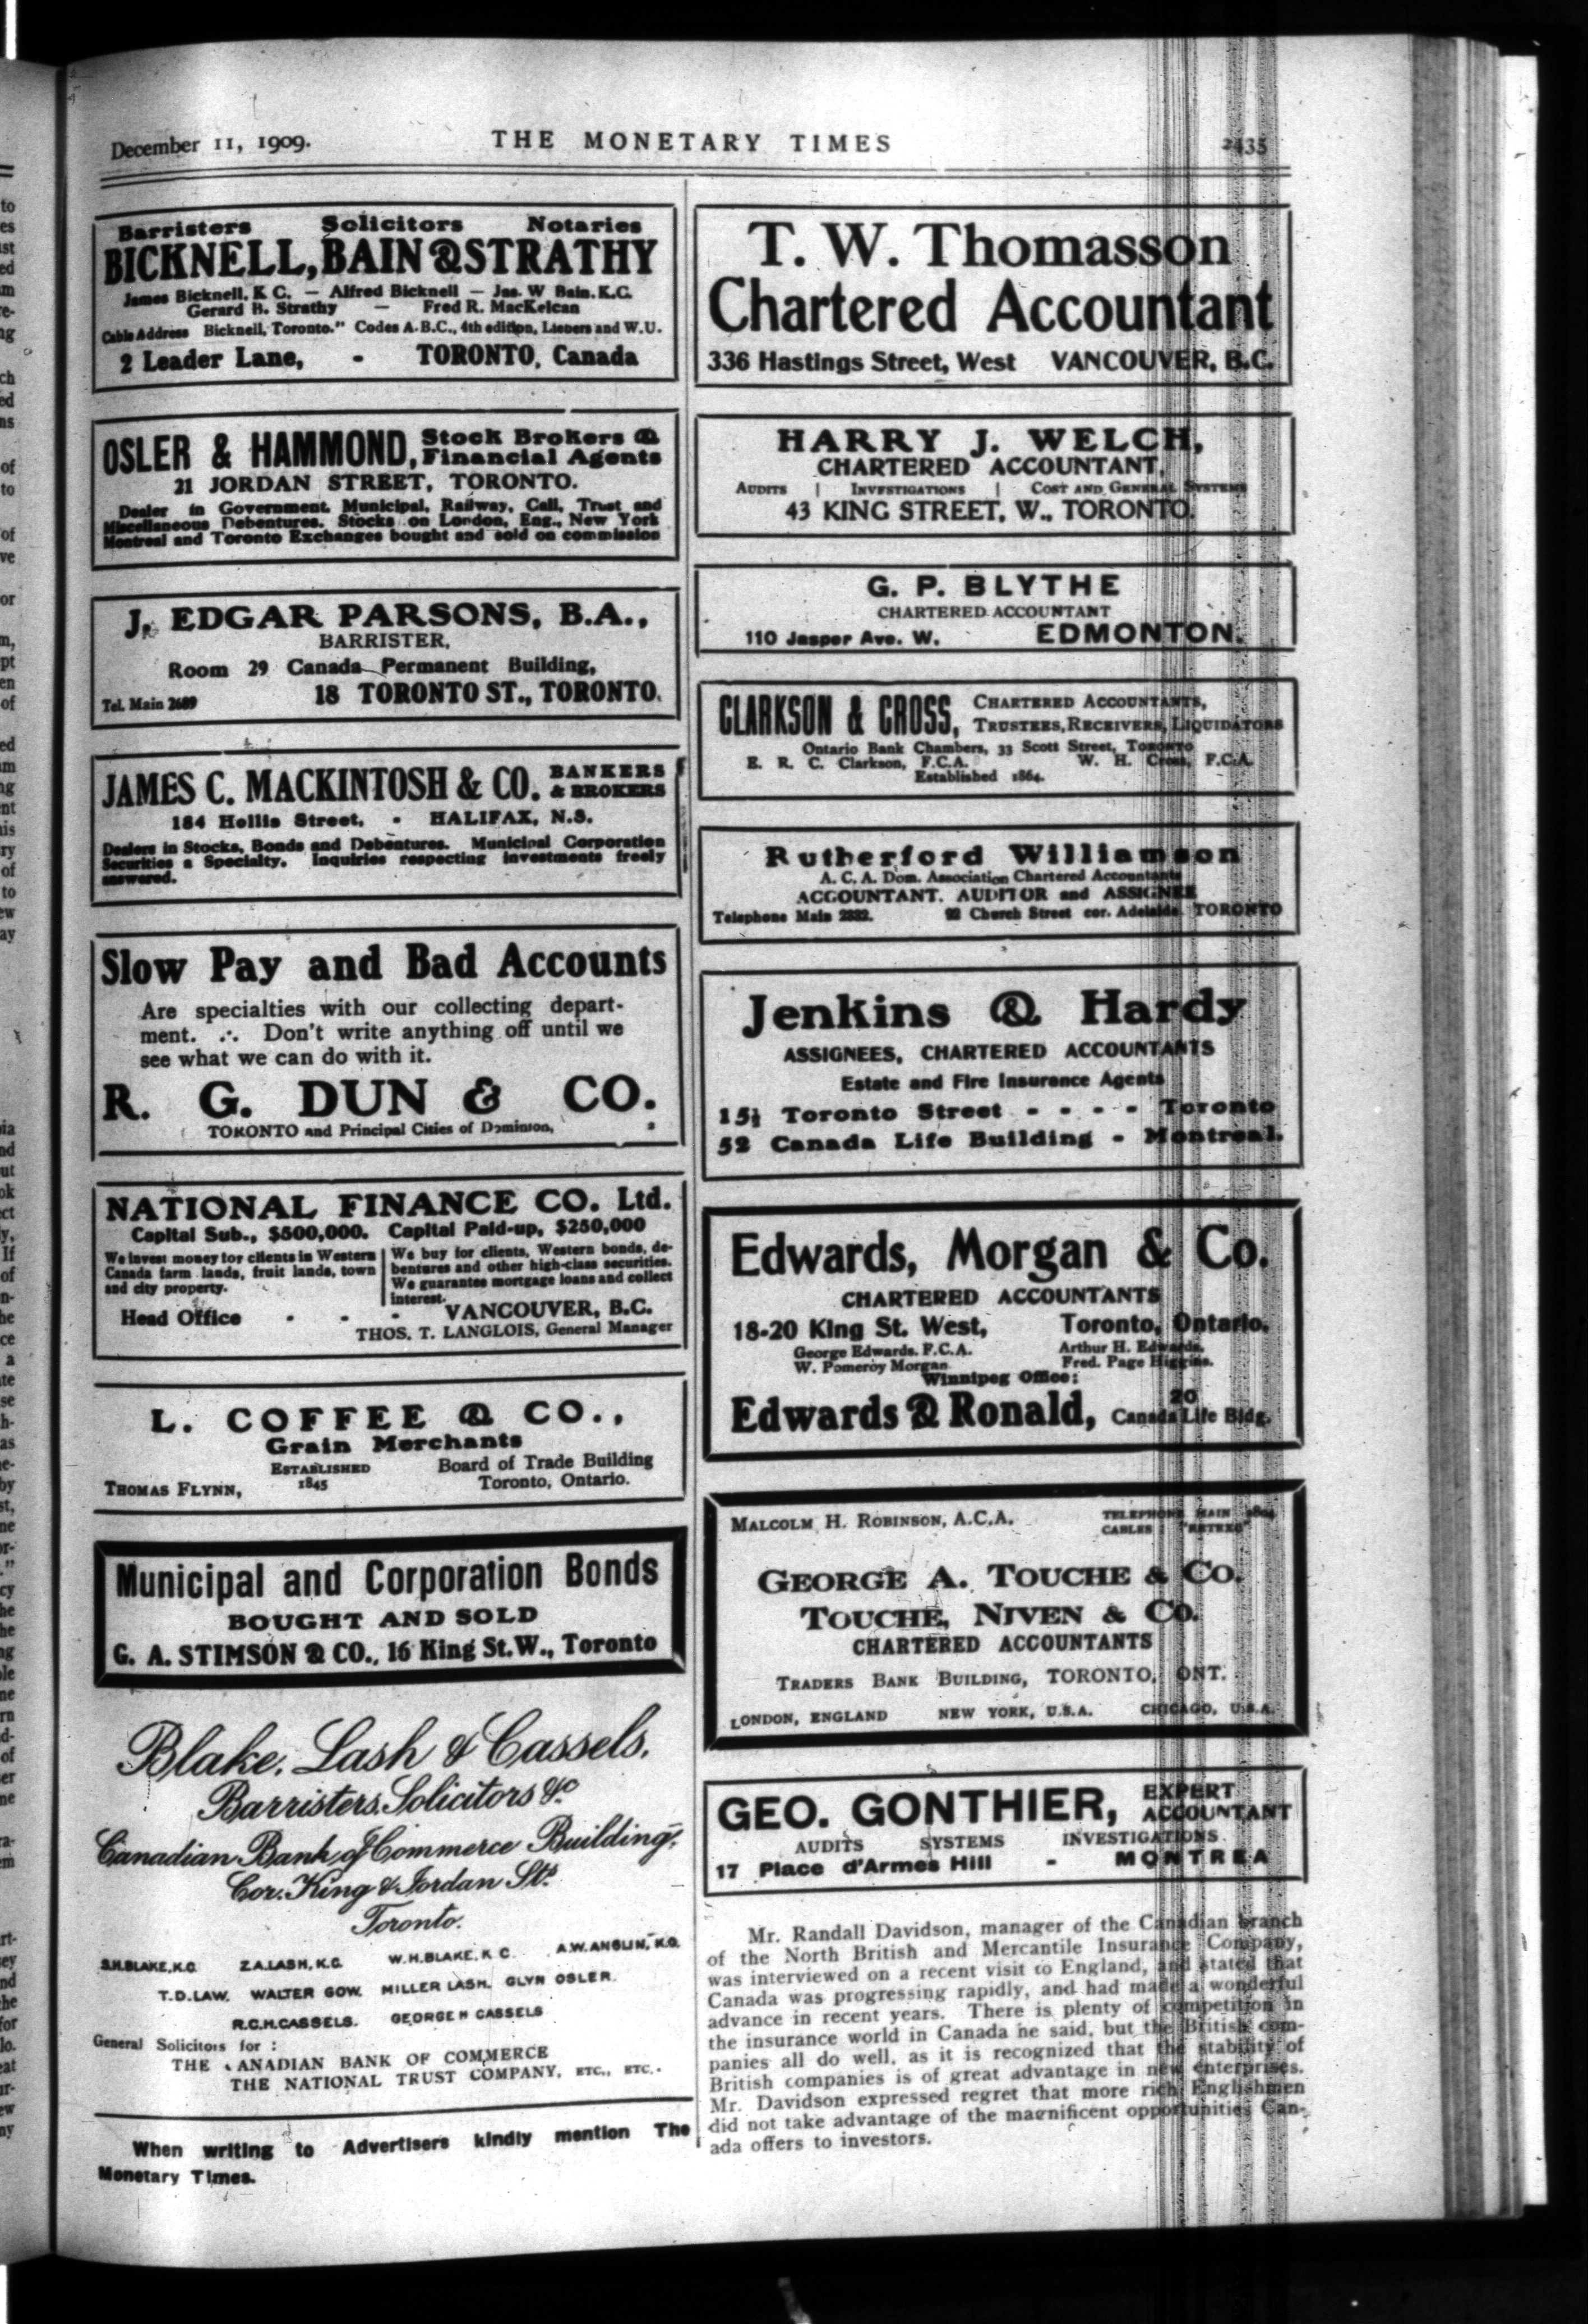 December 11, 1909.
THE MONETARY TIMES
2435
Barristers Solicitors Notaries
BICKNELL, BAIN & STRATHY
James Bicknell, K C. — Alfred Bicknell — Jas. W Bain, K.C.
Gerard B. Strathy — Fred R. MacKelcan
Cable Address Bicknell, Toronto." Codes A.B.C., 4th edition, Liebers and W.U.
2 Leader Lane, - TORONTO, Canada
OSLER & HAMMOND, Stock Brokers &
Financial Agents
21 JORDAN STREET, TORONTO.
Dealer in Government, Municipal, Railway, Call, Trust and
Miscellaneous Debentures. Stocks on London, Eng., New York
Montreal and Toronto Exchanges bought and sold on commission
J. EDGAR PARSONS, B.A.,
BARRISTER,
Room 29 Canada Permanent Building,
Tel. Main 2689 18 TORONTO ST., TORONTO.
JAMES C. MACKINTOSH & CO. BANKERS
& BROKERS
184 Hollis Street, - HALIFAX, N.S.
Dealers in Stocks, Bonds and Debentures. Municipal Corporation
Securities a Specialty. Inquiries respecting investments freely
answered.
Slow Pay and Bad Accounts
Are specialties with our collecting depart-
ment. ∴ Don't write anything off until we
see what we can do with it.
R. G. DUN & CO.
TORONTO and Principal Cities of Dominion,
NATIONAL FINANCE CO. Ltd.
Capital Sub., $500,000. Capital Paid-up, $250,000
We invest money for clients in Western
Canada farm lands, fruit lands, town
and city property.
We buy for clients, Western bonds, de-
bentures and other high-class securities.
We guarantee mortgage loans and collect
interest.
Head Office - - - VANCOUVER, B.C.
THOS. T. LANGLOIS, General Manager
L. COFFEE & CO.,
Grain Merchants
THOMAS FLYNN,
ESTABLISHED
1845
Board of Trade Building
Toronto, Ontario.
Municipal and Corporation Bonds
BOUGHT AND SOLD
G. A. STIMSON & CO., 16 King St. W., Toronto
Blake, Lash & Cassels,
Barristers, Solicitors &c
Canadian Bank of Commerce Building,
Cor. King & Jordan Sts.
Toronto.
S.H.BLAKE, K.C. Z.A. LASH, K.C. W.H. BLAKE, K C. A.W. ANGLIN, K.C.
T.D. LAW. WALTER GOW. MILLER LASH. GLYN OSLER.
R.C.H. CASSELS. GEORGE H CASSELS
General Solicitors for :
THE CANADIAN BANK OF COMMERCE
THE NATIONAL TRUST COMPANY, ETC., ETC.
When writing to Advertisers kindly mention The
Monetary Times.
T. W. Thomasson
Chartered Accountant
336 Hastings Street, West VANCOUVER, B.C.
HARRY J. WELCH,
CHARTERED ACCOUNTANT,
AUDITS | INVESTIGATIONS | COST AND GENERAL SYSTEMS
43 KING STREET, W., TORONTO.
G. P. BLYTHE
CHARTERED ACCOUNTANT
110 Jasper Ave. W. EDMONTON.
CLARKSON & CROSS, CHARTERED ACCOUNTANTS,
TRUSTEES, RECEIVERS, LIQUIDATORS
Ontario Bank Chambers, 33 Scott Street, TORONTO
E. R. C. Clarkson, F.C.A. W. H. Cross, F.C.A.
Established 1864.
Rutherford Williamson
A. C. A. Dom. Association Chartered Accountants
ACCOUNTANT, AUDITOR and ASSIGNEE
Telephone Main 2882. 92 Church Street cor. Adelaide, TORONTO
Jenkins & Hardy
ASSIGNEES, CHARTERED ACCOUNTANTS
Estate and Fire Insurance Agents
15½ Toronto Street - - - - Toronto
52 Canada Life Building - Montreal.
Edwards, Morgan & Co.
CHARTERED ACCOUNTANTS
18-20 King St. West, Toronto, Ontario.
George Edwards, F.C.A. Arthur H. Edwards.
W. Pomeroy Morgan Fred. Page Higgins.
Winnipeg Office:
Edwards & Ronald, 20
Canada Life Bldg.
MALCOLM H. ROBINSON, A.C.A.
TELEPHONE MAIN
CABLES : "RETEXO"
GEORGE A. TOUCHE & CO.
TOUCHE, NIVEN & CO.
CHARTERED ACCOUNTANTS
TRADERS BANK BUILDING, TORONTO, ONT.
LONDON, ENGLAND NEW YORK, U.S.A. CHICAGO, U.S.A.
GEO. GONTHIER, EXPERT
ACCOUNTANT
AUDITS SYSTEMS INVESTIGATIONS
17 Place d'Armes Hill - MONTREA
Mr. Randall Davidson, manager of the Canadian branch
of the North British and Mercantile Insurance Company,
was interviewed on a recent visit to England, and stated that
Canada was progressing rapidly, and had made a wonderful
advance in recent years. There is plenty of competition in
the insurance world in Canada he said, but the British com-
panies all do well, as it is recognized that the stability of
British companies is of great advantage in new enterprises.
Mr. Davidson expressed regret that more rich Englishmen
did not take advantage of the magnificent opportunities Can-
ada offers to investors.